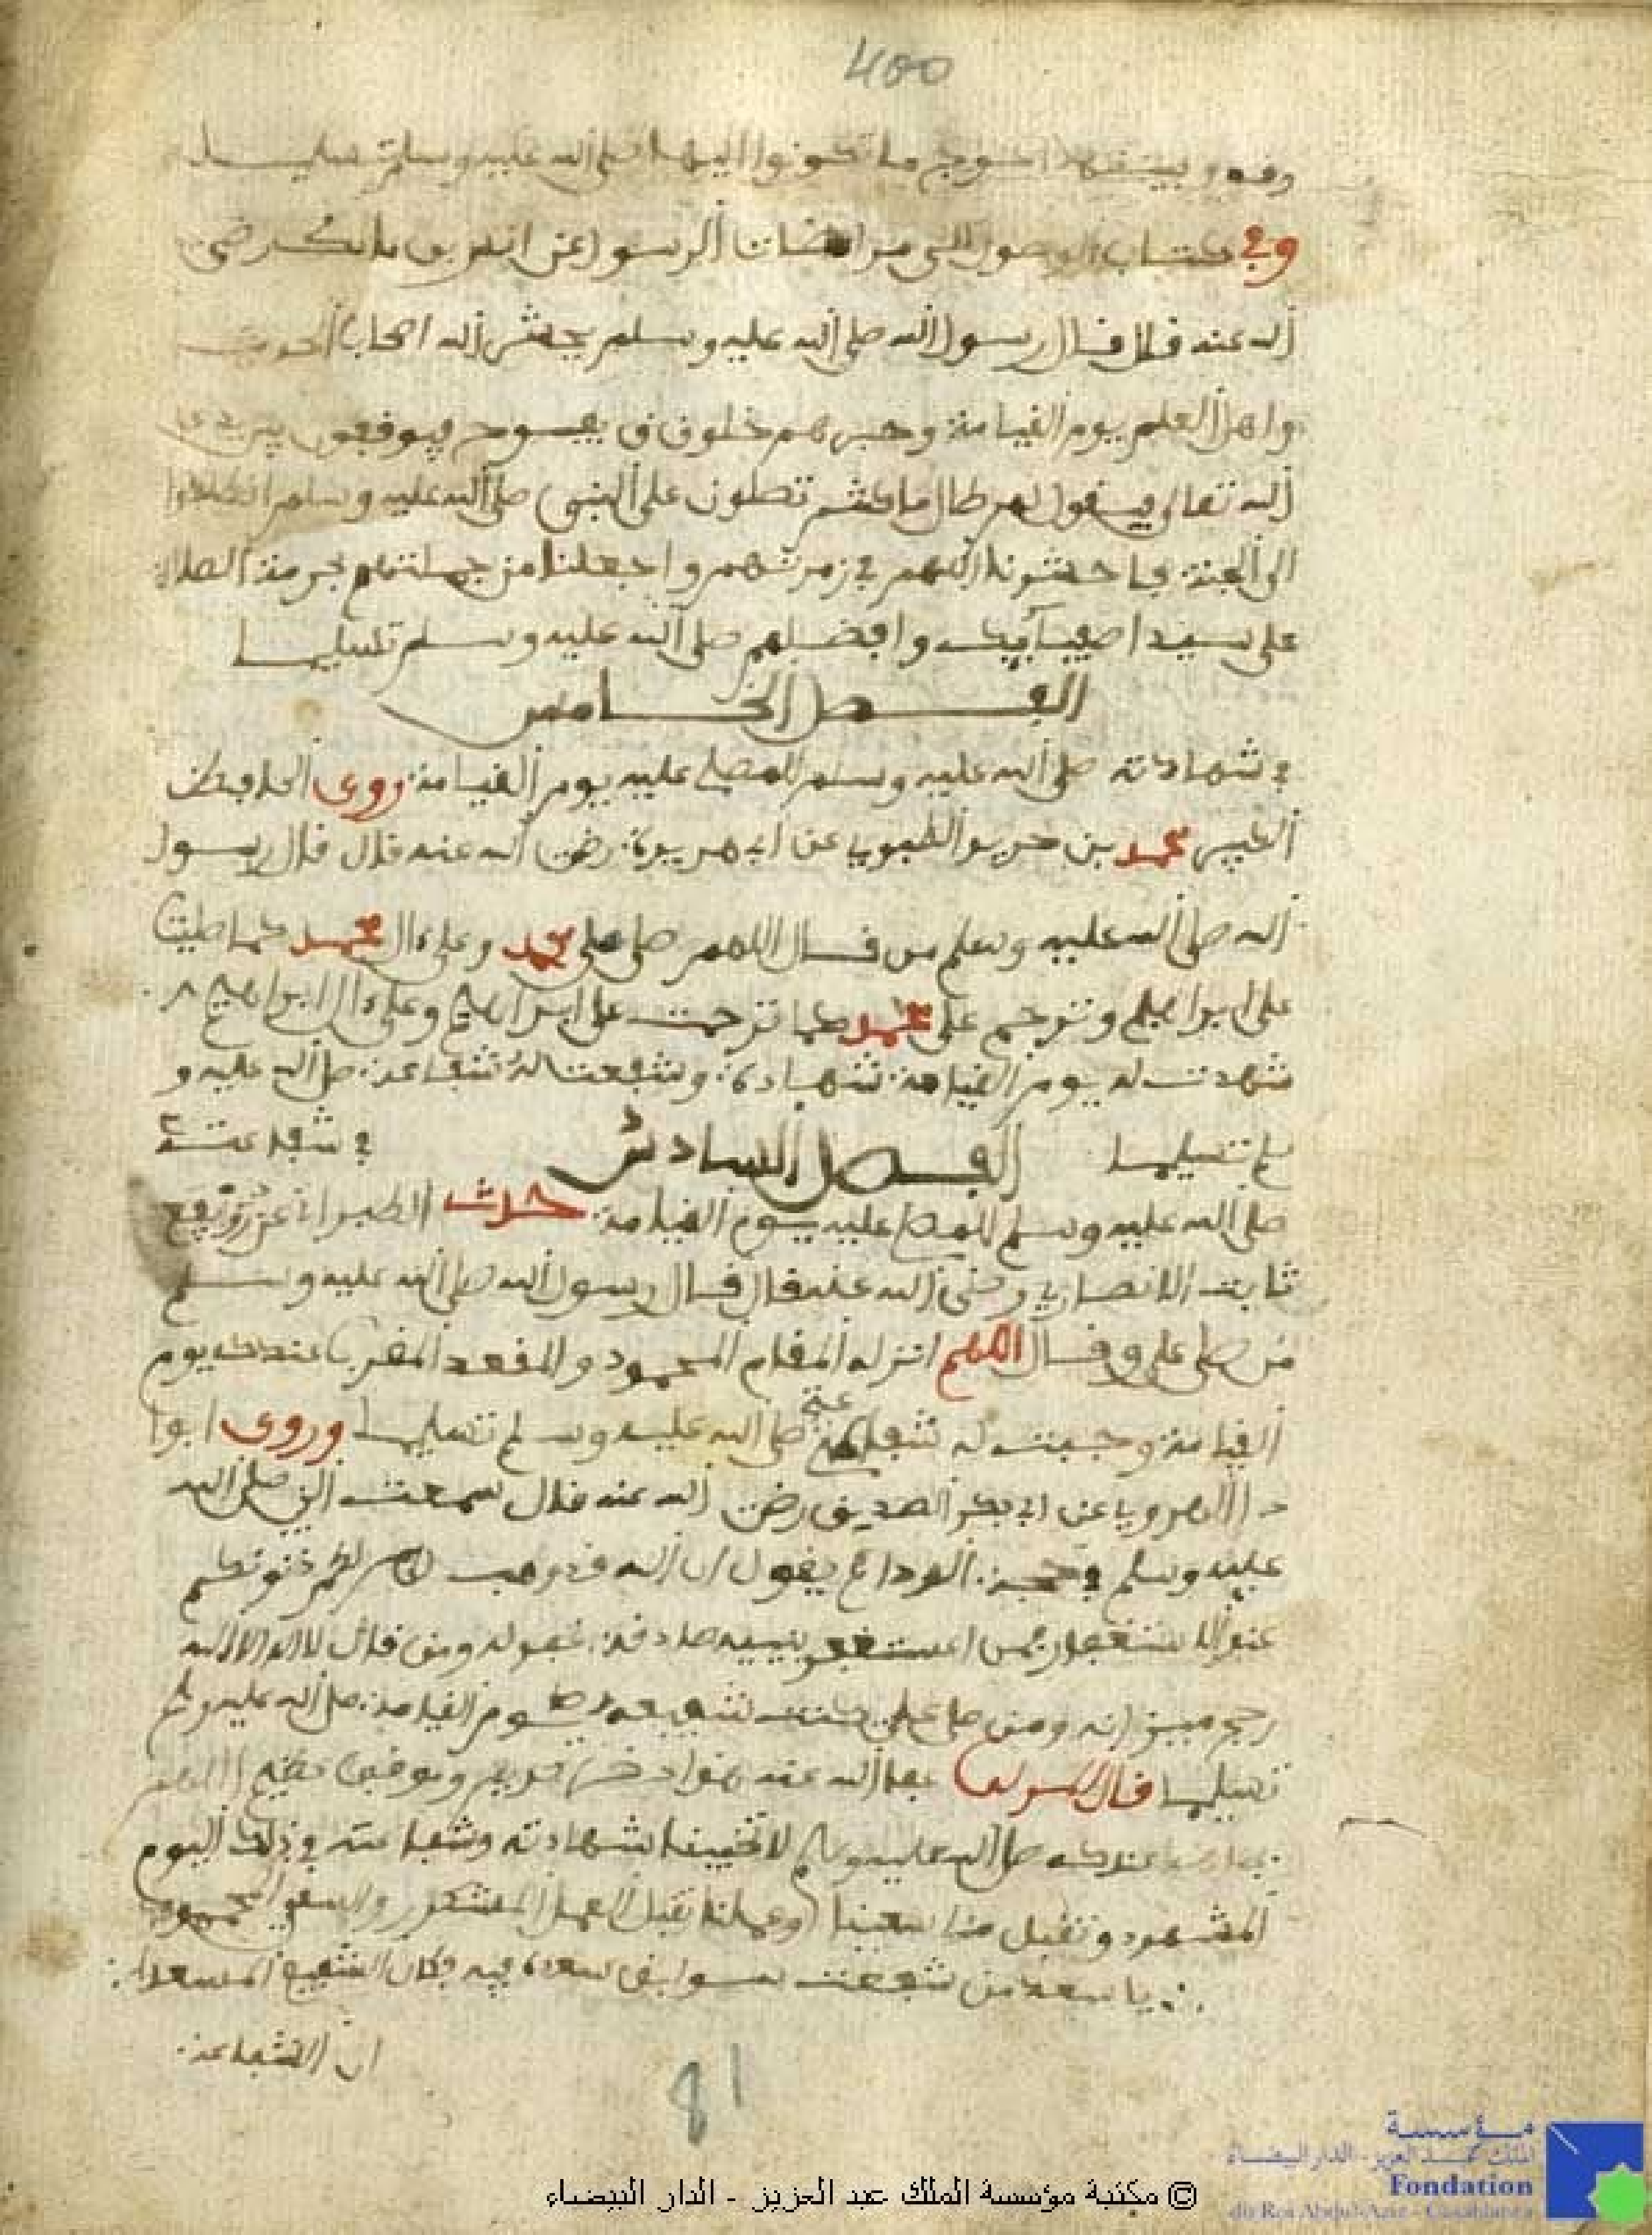 400
احوج ما تكونوا اليها صلى الله عليه وسلم تسليما
وفي كتاب الوصول الى مرامضات الرسول عن انس بن مالك رضي
الله عنه قال قال رسول الله صلى الله عليه وسلم يحشر الله اصحاب الحديث
واهل العلم يوم القيامة وحبرهم خلوق يفوح فيوقفون بين يدي
الله تعالى فيقول لهم طال ما كنتم تصلون على النبي صلى الله عليه وسلم انطلقوا
الى الجنة فاحشرنا اللهم في زمرتهم واجعلنا من جملتهم بحرمة الصلاة
على سيد اصفيائك وافضلهم صلى الله عليه وسلم تسليما
الفصل الخامس
في شهادته صلى الله عليه وسلم للمصلي عليه يوم القيامة روى الحافظ
الكبير محمد بن جرير الطبري عن ابي هريرة رضي الله عنه قال قال رسول
الله صلى الله عليه وسلم من قال اللهم صل على محمد وعلى ال محمد كما صليت
على ابراهيم وترحم على محمد كما ترحمت على ابراهيم وعلى ال ابراهيم
شهدت له يوم القيامة شهادة وشفعت له شفاعة صلى الله عليه و
سلم تسليما الفصل السادس في شفاعته
صلى الله عليه وسلم للمصلي عليه يوم القيامة حدث الطبراني عن رويفع
ثابت الانصاري رضي الله عنه قال قال رسول الله صلى الله عليه وسلم
من صلى علي وقال اللهم انزله المقام المحمود والمقعد المقرب عندك يوم
القيامة وجبت له شفاعتي صلى الله عليه وسلم تسليما وروى ابوا
د الهروي عن ابي بكر الصديق رضي الله عنه قال سمعت النبي صلى الله
عليه وسلم في حجة الوداع يقول ان الله قد وهب لكم ذنوبكم
عند الاستغفار فمن استغفر بنية صادقة غفر له ومن قال لا اله الا الله
رجح ميزانه ومن صلى علي كنت شفيعه يوم القيامة صلى الله عليه وسلم
تسليما قال المولف عفا الله عنه
عندك صلى الله عليه وسلم لا تخيبنا شهادته وشفاعته في ذلك اليوم
المشهود وتقبل منا سعينا وعملنا تقبل العمل المشكور والسعي المحمود
يا سعد من شفعت سوابق سعده فيه فكان الشفيع المسعدا
ان الشفاعة
81
© مكتبة مؤسسة الملك عبد العزيز - الدار البيضاء
مؤسسة
الملك عبد العزيز - الدار البيضاء
Fondation
du Roi Abdul-Aziz - Casablanca